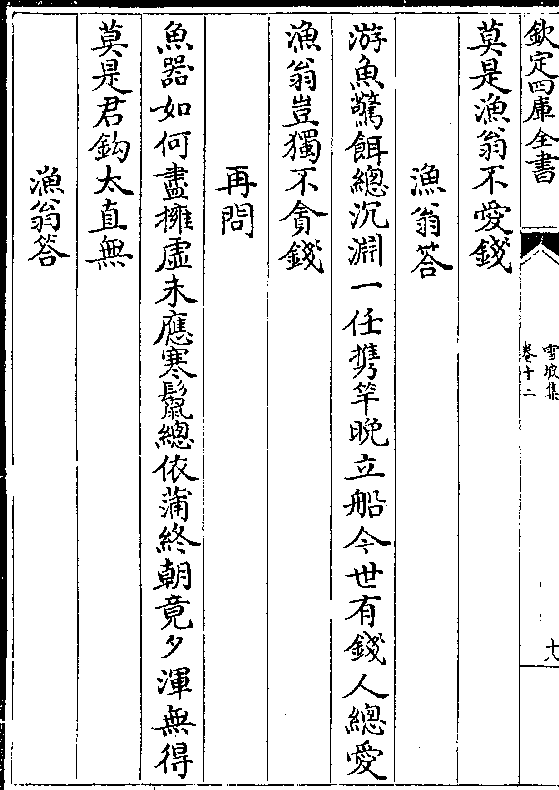 欽定四庫全書
雪坡集
卷十二
十八
莫是漁翁不愛錢
漁翁答
游魚驚餌總沉淵一任携竿晚立船今世有錢人總愛
漁翁豈獨不貪錢
再問
魚器如何盡擁虛未應寒鬛總依蒲終朝竟夕渾無得
莫是君鈎太直無
漁翁答